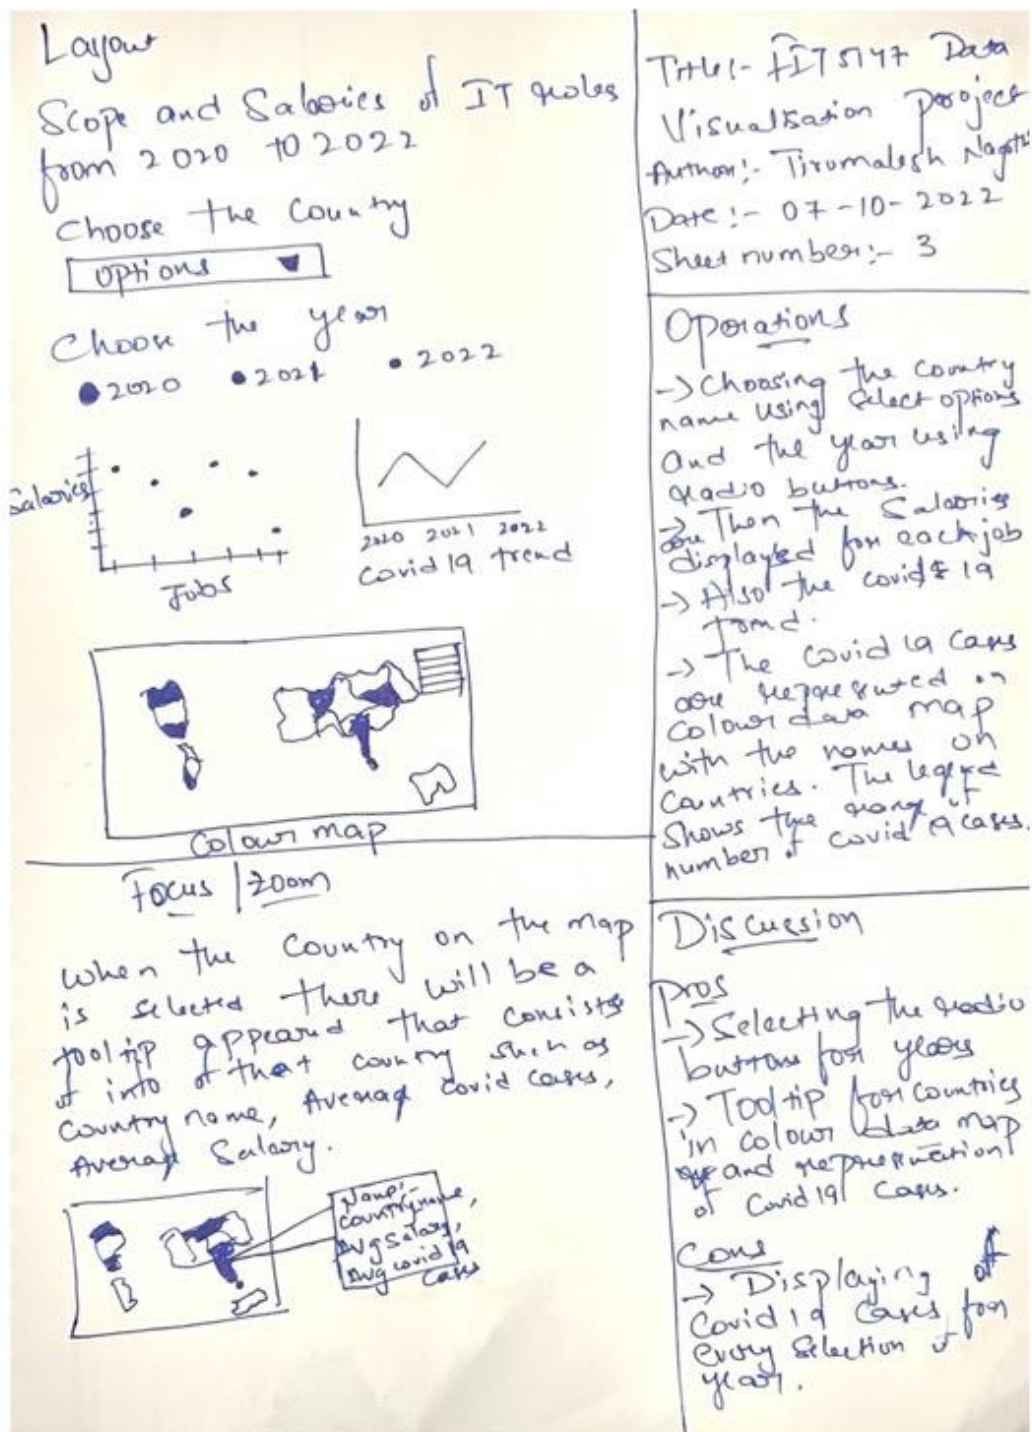 Layout
Scope and Salaries of IT roles
from 2020 to 2022
Choose the Country
Options
Choose the year
2020 2021 2022
Salaries
Jobs
2020 2021 2022
Covid 19 trend
Colour map
Focus | Zoom
when the Country on the map
is selected there will be a
tool tip appeared that consists
of info of that country such as
Country name, Average Covid cases,
Average Salary.
Name:-
Country name,
Avg Salary,
Avg covid 19
Cases
Title:- FIT5147 Data
Visualisation Project
Author:- Tirumalesh
Date:- 07-10-2022
Sheet number:- 3
Operations
-> Choosing the Country
name using Select options
and the year using
radio buttons.
-> Then the Salaries
are displayed for each job
-> Also the covid 19
trend.
-> The Covid 19 Cases
are represented on
Colour data map
with the names on
Countries. The legend
Shows the range of
number of covid 19 cases.
Discussion
Pros
-> Selecting the radio
buttons for years
-> Tool tip for Countries
in colour data map
and representation
of Covid 19 Cases.
Cons
-> Displaying of
Covid 19 Cases for
every Selection of
year.